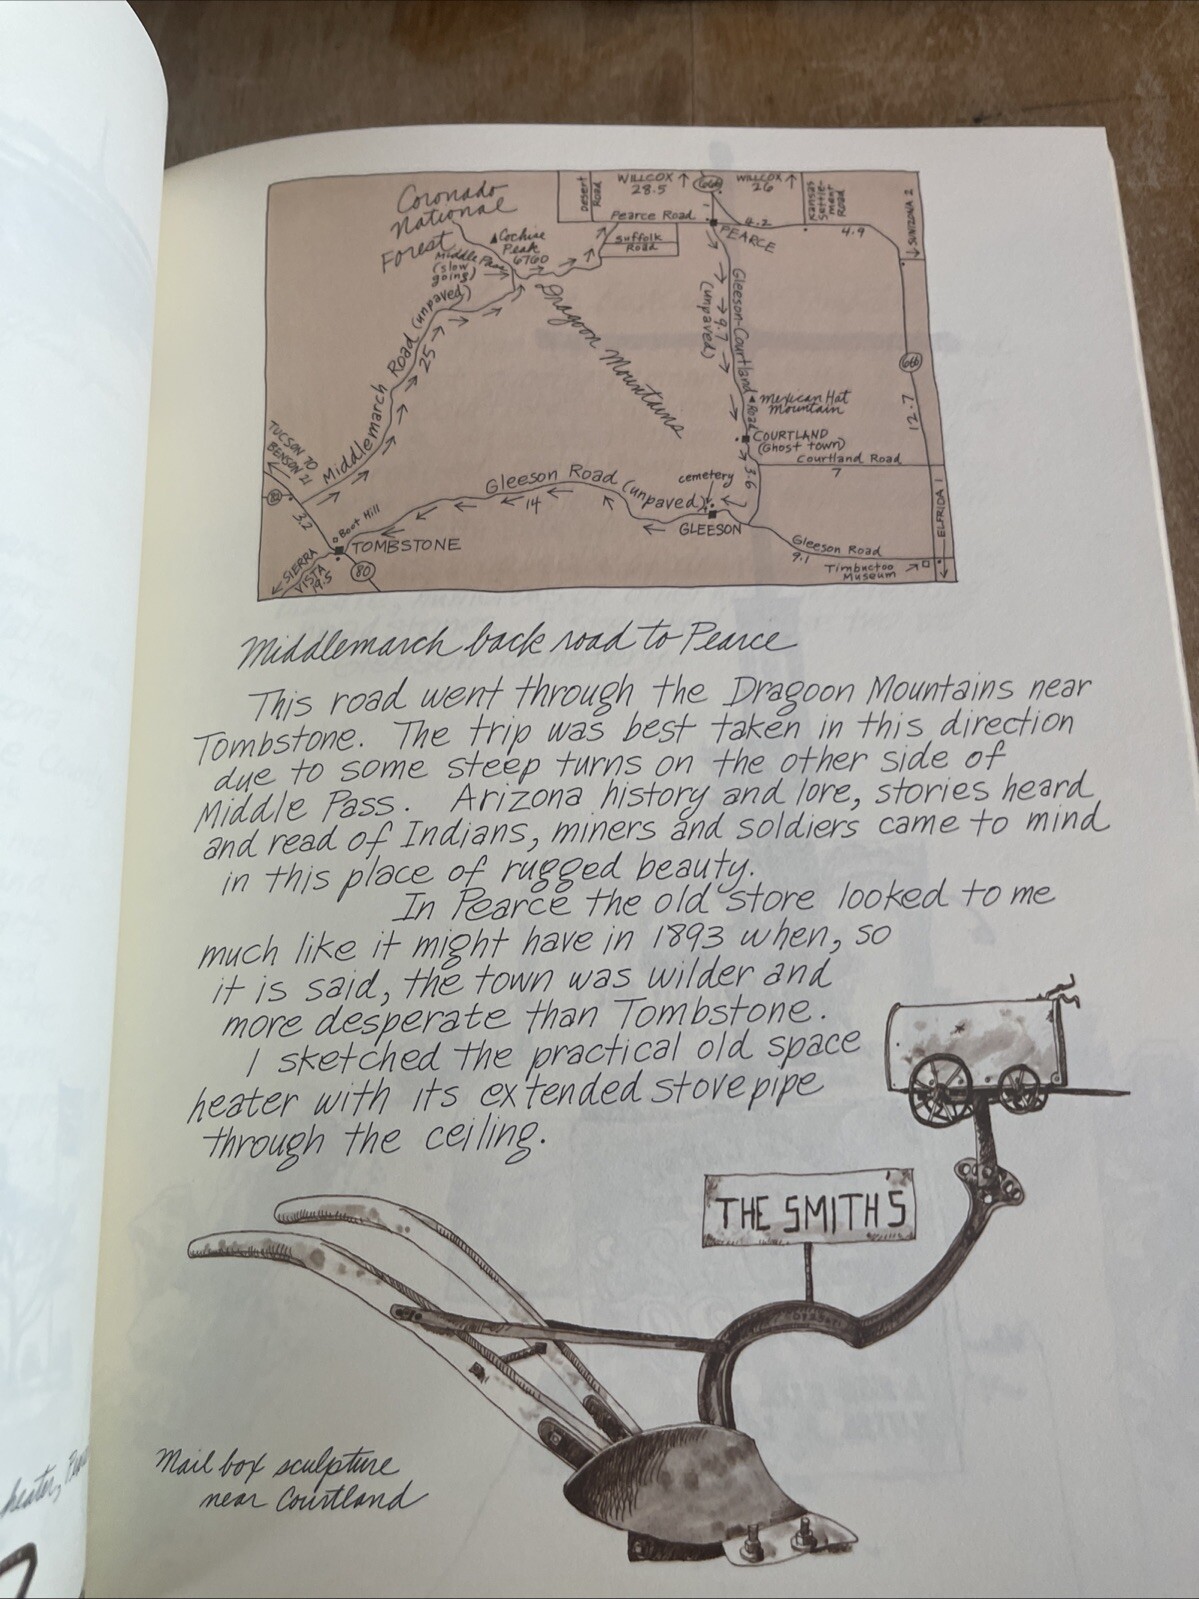 Coronado
National
Forest
Cochise
Peak
6760
Middle Pass
(slow
going)
Desert
Road
WILLCOX ↑
28.5
666
WILLCOX ↑
26
Kansas
Settle-
ment
Road
SUNIZONA 2
Pearce Road
1
4.2
4.9
Suffolk
Road
PEARCE
Middlemarch Road (unpaved)
25
Dragoon Mountains
Gleeson-Courtland Road
9.7
(unpaved)
666
12.7
Mexican Hat
Mountain
COURTLAND
(Ghost town)
Courtland Road
7
3.6
TUCSON 70
BENSON 21
80
3.2
Boot Hill
TOMBSTONE
SIERRA
VISTA
19.5
80
Gleeson Road (unpaved)
14
cemetery
GLEESON
Gleeson Road
9.1
Timbuctoo
Museum
ELFRIDA 1
Middlemarch back road to Pearce
This road went through the Dragoon Mountains near
Tombstone. The trip was best taken in this direction
due to some steep turns on the other side of
Middle Pass. Arizona history and lore, stories heard
and read of Indians, miners and soldiers came to mind
in this place of rugged beauty.
In Pearce the old store looked to me
much like it might have in 1893 when, so
it is said, the town was wilder and
more desperate than Tombstone.
I sketched the practical old space
heater with its extended stovepipe
through the ceiling.
THE SMITHS
Mail box sculpture
near Courtland
heater,